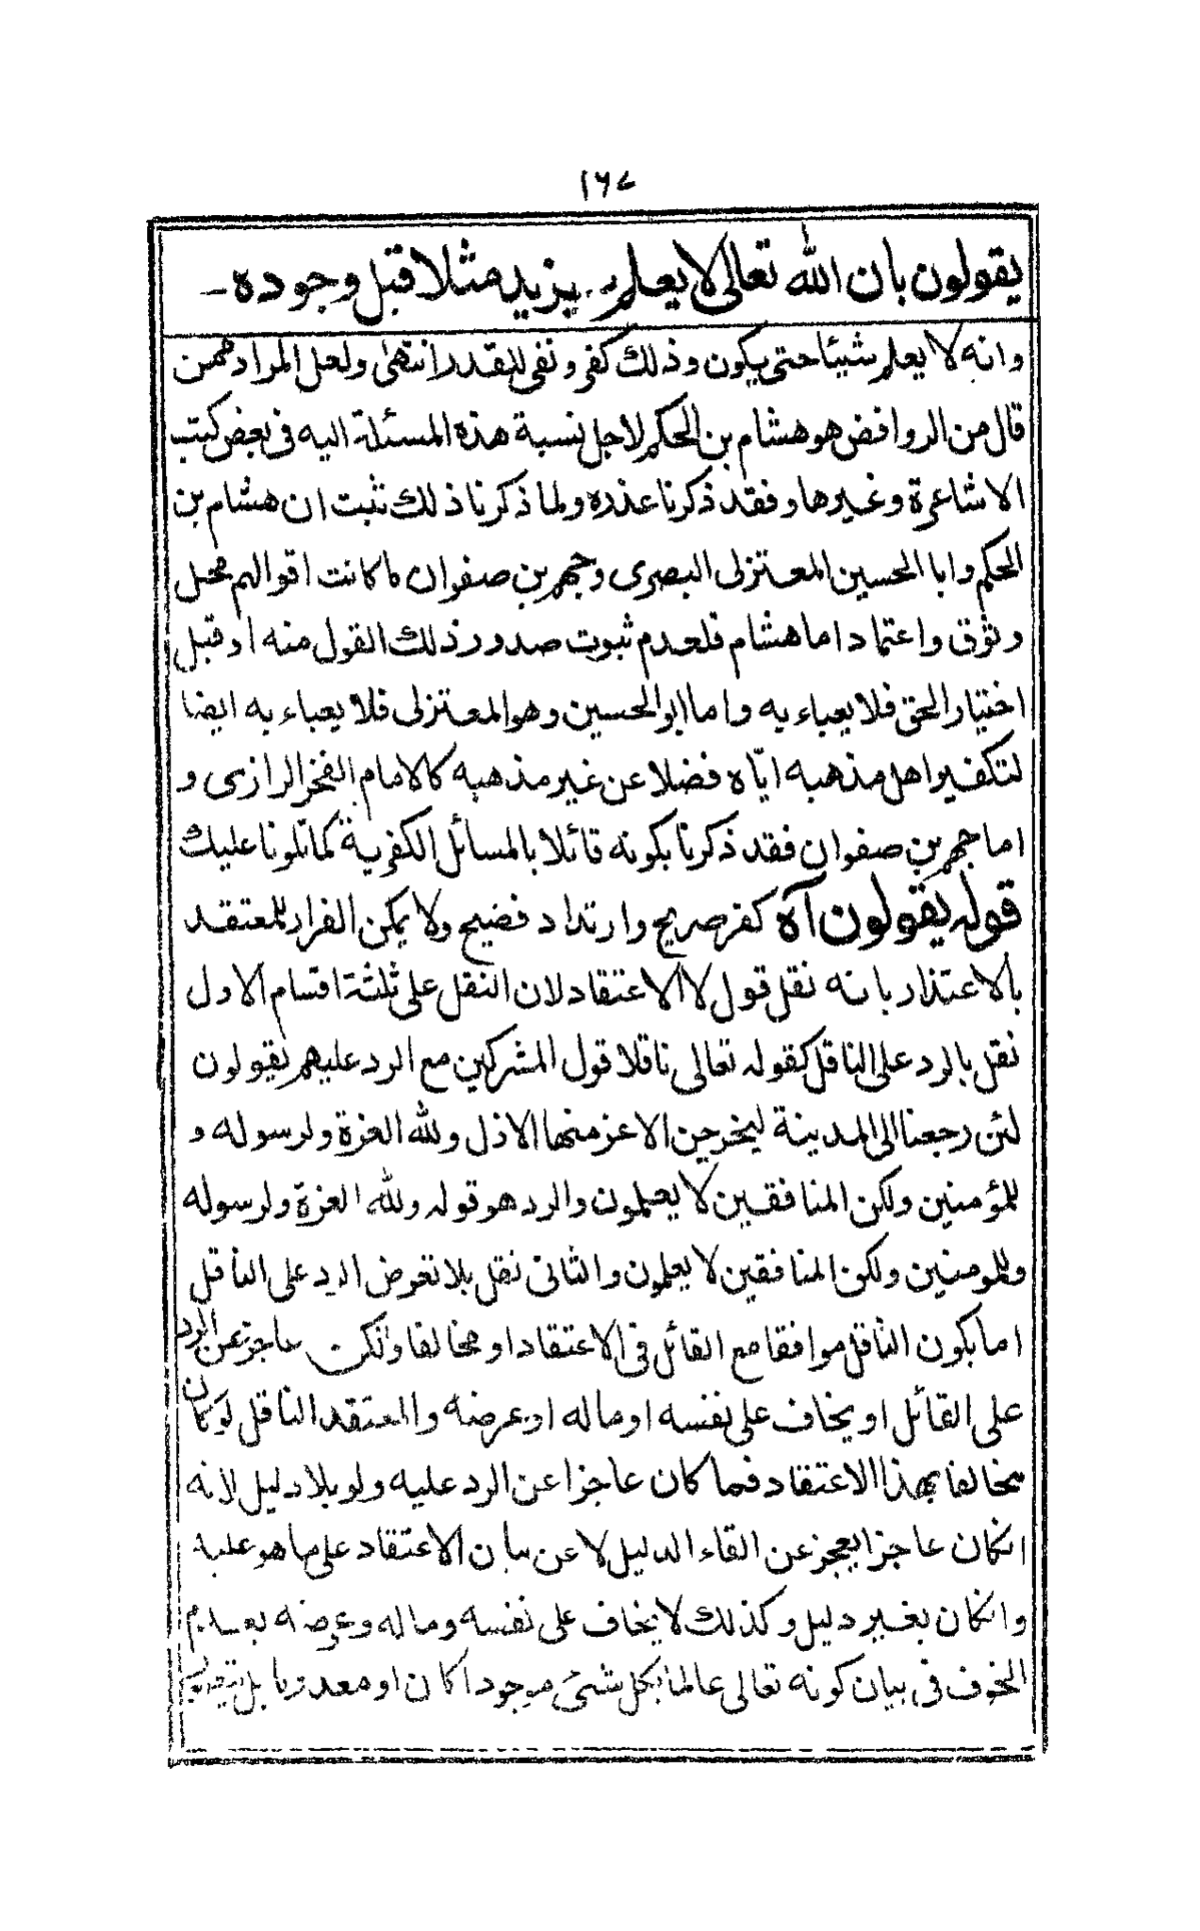 ١٦٧
يقولون بان الله تعالى لا يعلم بزيد مثلا قبل وجوده۔
وانه لا يعلم شيئا حتى يكون وذلك كفر ونفى للقدر انتهى ولعل المراد ممن
قال من الروافض هو هشام بن الحكم لاجل نسبة هذه المسئلة اليه فى بعض كتب
الاشاعرة وغيرها وفقد ذكرنا عذره ولما ذكرنا ذلك ثبت ان هشام بن
الحكم وابا الحسين المعتزلى البصرى وجهم بن صفوان ما كانت اقوالهم محل
وثوق واعتماد اما هشام فلعدم ثبوت صدور ذلك القول منه او قبل
اختيار الحق فلا يعباء به واما ابو الحسين وهو المعتزلى فلا يعباء به ايضا
لتكفير اهل مذهبه اياه فضلا عن غير مذهبه كالامام الفخر الرازى و
اما جهم بن صفوان فقد ذكرنا بكونه قائلا بالمسائل الكفرية كما تلونا عليك
قوله يقولون آه كفر صريح وارتداد فضيح ولا يمكن الفرار للمعتقد
بالاعتذار بانه نقل قول لا الاعتقاد لان النقل على ثلثة اقسام الاول
نقل بالرد على الناقل كقوله تعالى ناقلا قول المشركين مع الرد عليهم يقولون
لئن رجعنا الى المدينة ليخرجن الاعز منها الاذل ولله العزة ولرسوله و
للمؤمنين ولكن المنافقين لا يعلمون والرد هو قوله ولله العزة ولرسوله
وللمومنين ولكن المنافقين لا يعلمون والثانى نقل بلا تعرض الرد على الناقل
اما بكون الناقل موافقا مع القائل فى الاعتقاد او مخالفا ولكن عاجز عن الرد
على القائل او يخاف على نفسه او ماله او عرضه والمعتقد الناقل لو كان
مخالفا بهذا الاعتقاد فما كان عاجزا عن الرد عليه ولو بلا دليل لانه
انكان عاجزا يعجز عن القاء الدليل لا عن بيان الاعتقاد على ما هو عليه
وانكان بغير دليل وكذلك لا يخاف على نفسه وماله وعرضه بعدم
الخوف فى بيان كونه تعالى عالما بكل شئ موجودا كان او معدوما بل